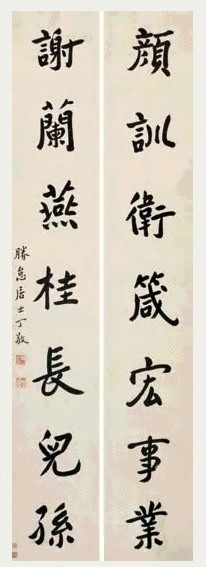 顏訓衛箴宏事業
謝蘭燕桂長兒孫
勝怠居士丁敬